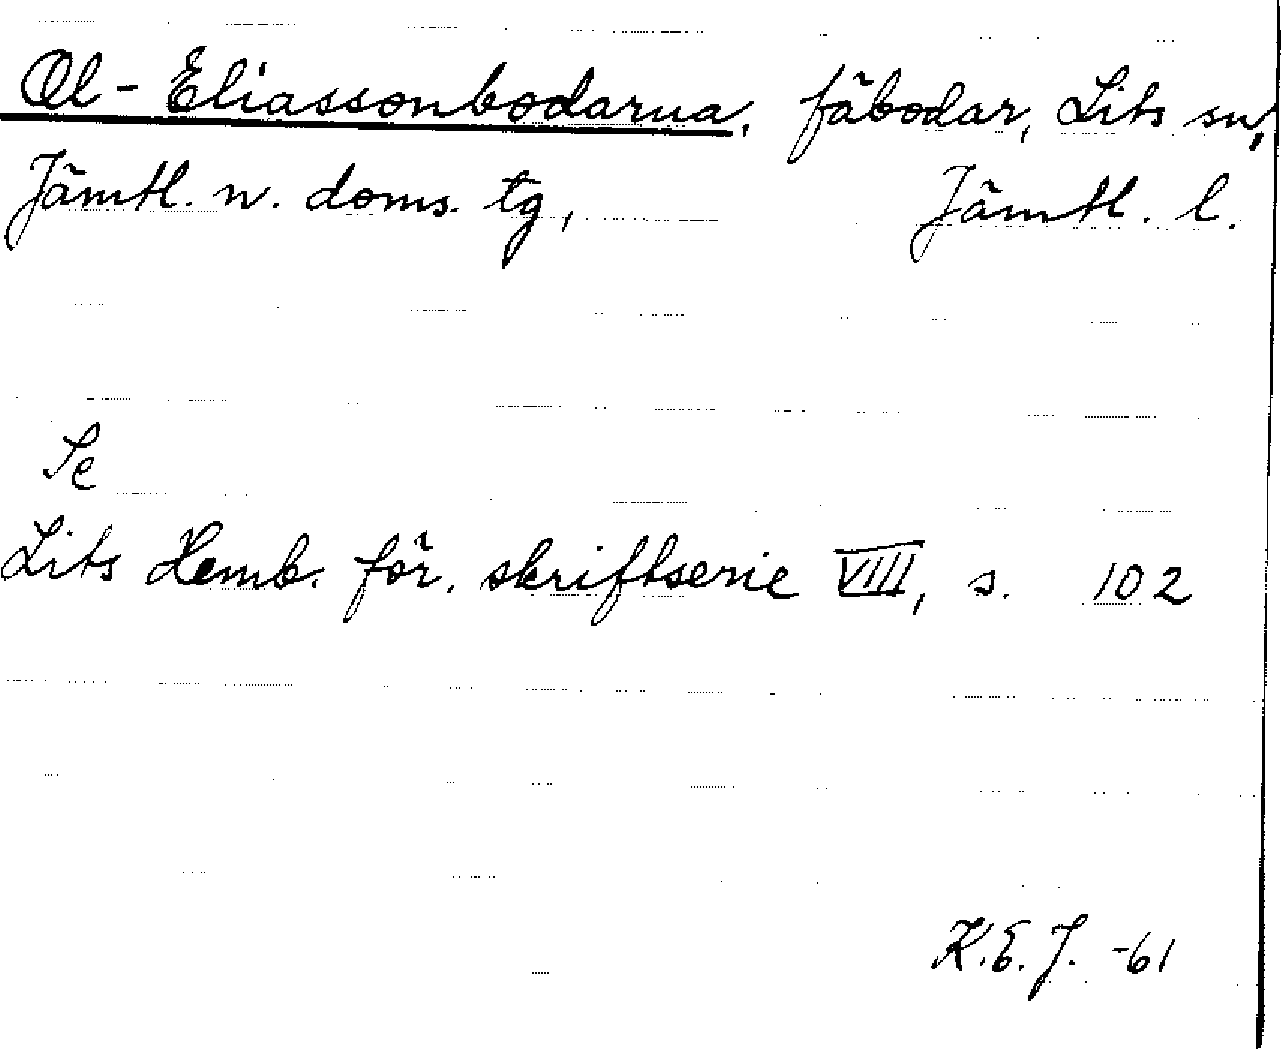 Ol-Eliassonbodarna, fäbodar, Lits sn,
Jämtl. n. doms. tg, Jämtl. l.
Se
Lits Hemb. för. skriftserie VIII, s. 102
K.E.J. -61